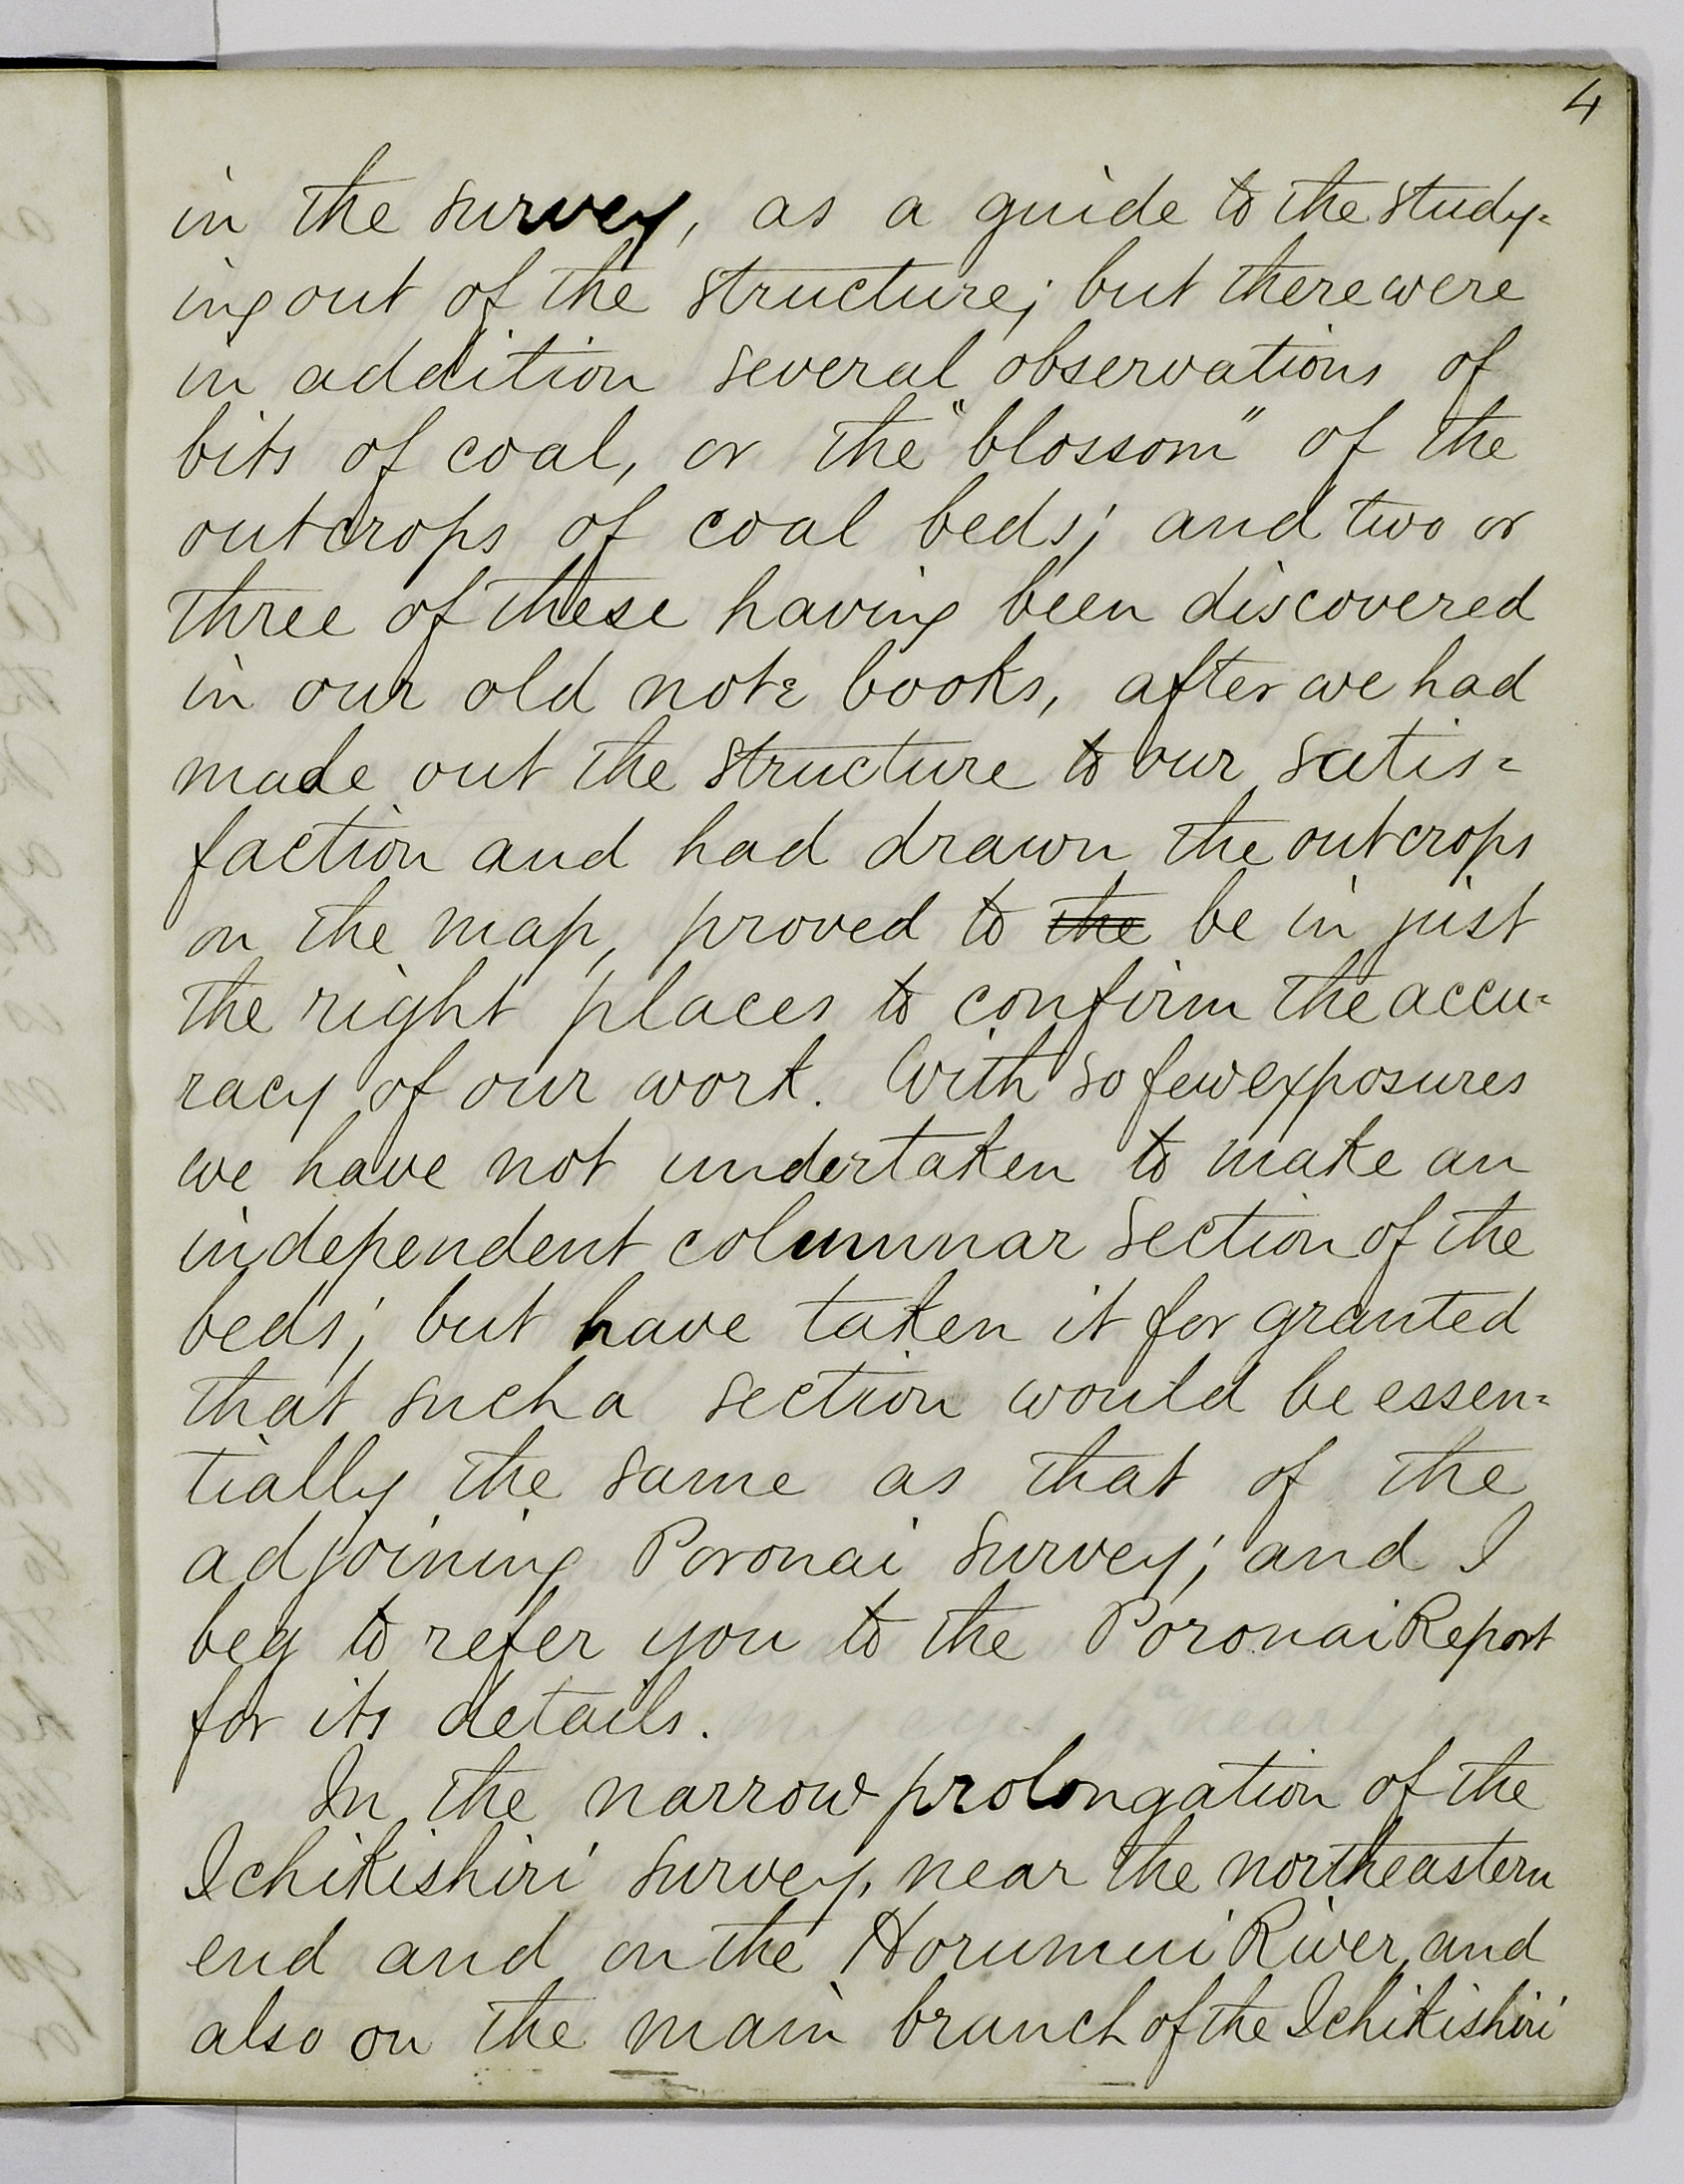 4
in the survey, as a guide to the study=
ing out of the structure; but there were
in addition several observations of
bits of coal, or the "blossom" of the
outcrops of coal beds; and two or
three of these having been discovered
in our old note books, after we had
made out the structure to our satis=
faction and had drawn the outcrops
on the map, proved to ~~the~~ be in just
the right places to confirm the accu=
racy of our work. With so few exposures
we have not undertaken to make an
independent columnar section of the
beds; but have taken it for granted
that such a section would be essen=
tially the same as that of the
adjoining Poronai survey; and I
beg to refer you to the Poronai Report
for its details.
In the narrow prolongation of the
Ichikishiri survey, near the northeastern
end and on the Horumui River, and
also on the main branch of the Ichikishiri